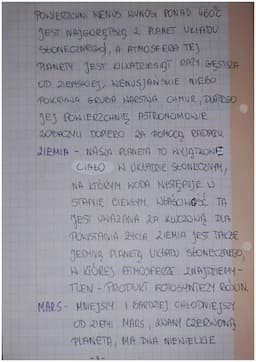 POWIERZCHNI WENUS WYNOSI PONAD 460°C
JEST NAJGORĘTSZĄ Z PLANET UKŁADU
SŁONECZNEGO, A ATMOSFERA TEJ
PLANETY JEST KILKADZIESIĄT RAZY GĘSTSZA
OD ZIEMSKIEJ, WENUSJAŃSKIE NIEBO
POKRYWA GRUBA WARSTWA CHMUR, DLATEGO
JEJ POWIERZCHNIĘ ASTRONOMOWIE
ZOBACZYLI DOPIERO ZA POMOCĄ RADARU.
ZIEMIA - NASZA PLANETA TO WYJĄTKOWE
CIAŁO W UKŁADZIE SŁONECZNYM,
NA KTÓRYM WODA WYSTĘPUJE W
STANIE CIEKŁYM, WŁASNOŚĆ TA
JEST UWAŻANA ZA KLUCZOWĄ DLA
POWSTANIA ŻYCIA ZIEMIA JEST TAKŻE
JEDYNĄ PLANETĄ UKŁADU SŁONECZNEGO,
W KTÓREJ ATMOSFERZE ZNAJDZIEMY-
TLEN - PRODUKT FOTOSYNTEZY ROŚLIN.
MARS - MNIEJSZY I BARDZIEJ CHŁODNIEJSZY
OD ZIEMI MARS, ZWANY CZERWONĄ
PLANETĄ, MA DWA NIEWIELKIE